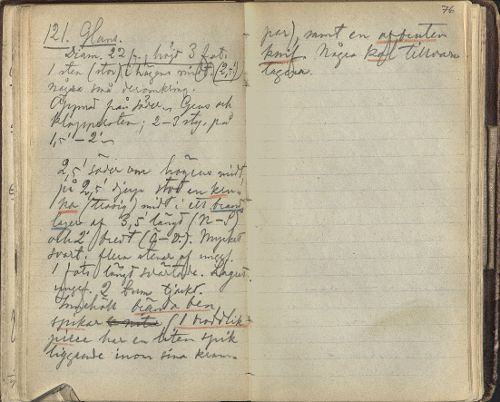 121. Gland.
Diam. 22 f., höjd 3 fot.
1 sten (stor) i högens midt (2,5')
Några små deromkring.
Öppnad från söder. Grus och
klappersten; 2–3 styg. på
1,5'–2'
2,5' söder om högens midt,
på 2,5' djup stod en kru-
ka (trasig) midt i ett brand-
lager af 3,5' längd (N–S)
och 2' bredt (Ö–V). Mycket
svart; flera stenar af ungef.
1 fots längd svärtade. Lagret
ungef. 2 tum tjockt.
Innehöll brända ben
spikar (1
har en liten spik
liggande inom sina kram-
76
por), samt en afbruten
knif. Några kol tillvara-
togos.